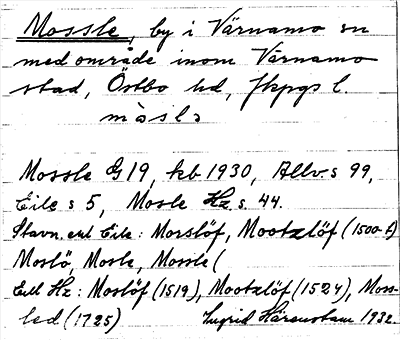 Mossle, by i Värnamo sn
med område inom Värnamo
stad, Östbo hd, Jkpgs l.
Mossle G19, kb 1930, Allv. s 99,
Eile s 5, Mosle Hz s. 44.
Stavn. enl Eile: Morslöf, Mootzlöf (1500-t)
Moslö, Mosle, Mossle (
Enl Hz: Moslöf (1519), Mootzlöf (1524), Moss-
led (1725) Ingrid 1932.